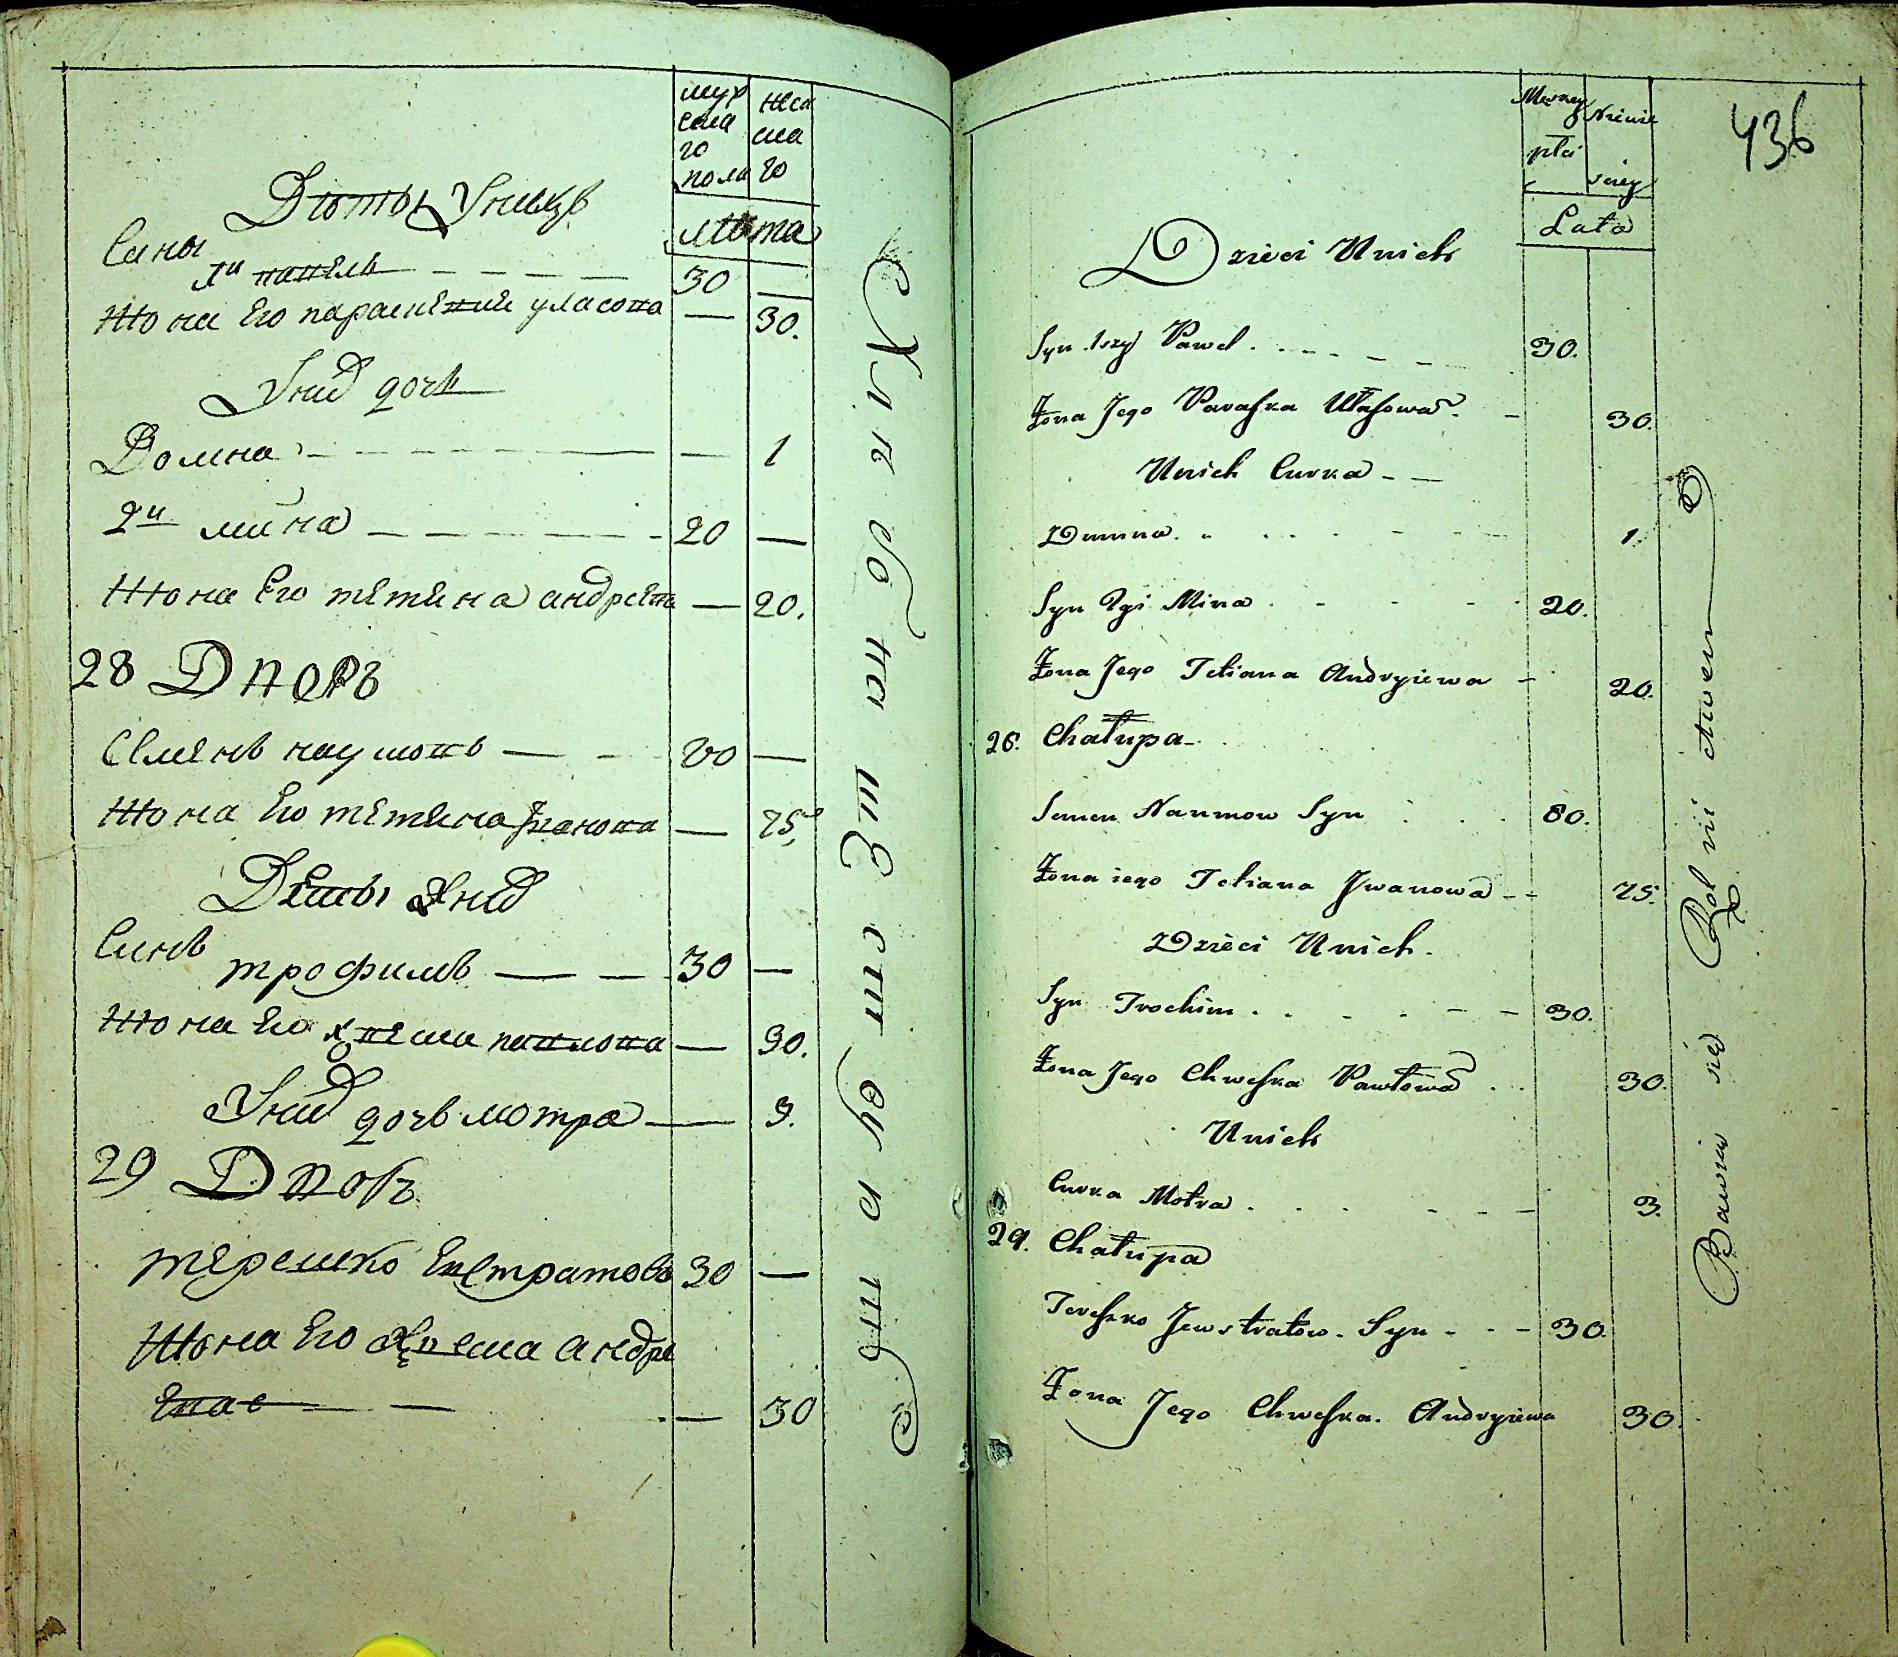 мужеска го пола
женска го
лѣта
Дѣты Унихъ
Сины
1й павелъ — — — — 30 —
Жона Его параскевия уласова — 30.
Унихъ дочь
Домна — — — — — 1
2й мина — — — — 20 —
Жона Его тетяна андреева — 20.
28 Дворъ
Семенъ наумовъ — — 80 —
Жона Его тетяна Іванова — 75
Дети Унихъ
Синъ трофимъ — — 30 —
Жона Его хвеска павлова — 30.
Унихъ дочь мотра — 3.
29 Дворъ
терешко Евстратовъ 30 —
Жона Его Хвеска андре
ева — — — 30
Хлебопашеством
436
Męzkiey płci
Niewie sciey
Lata
Dzieci Unich
Syn 1szy Paweł. - - - - 30.
Żona Jego Paraska Ułasowa. - 30.
Unich Curka - -
Dumna. - . . . - - - 1.
Syn 2gi Mina . - - - . 20.
Żona Jego Tetiana Andryiewa - 20.
28. Chałupa -
Semen Naumow Syn . . . 80.
Żona iego Tetiana Jwanowa - - 75.
Dzieci Unich.
Syn Trochim . . - . - - 30.
Żona Jego Chweska Pawłowa . . 30.
Unich
Curka Motra . . . - - - 3.
29. Chałupa
Tereszko Jewstratow. Syn - - - 30.
Żona Jego Chweska. Andryiewa 30.
Bawią się Rolnictwem